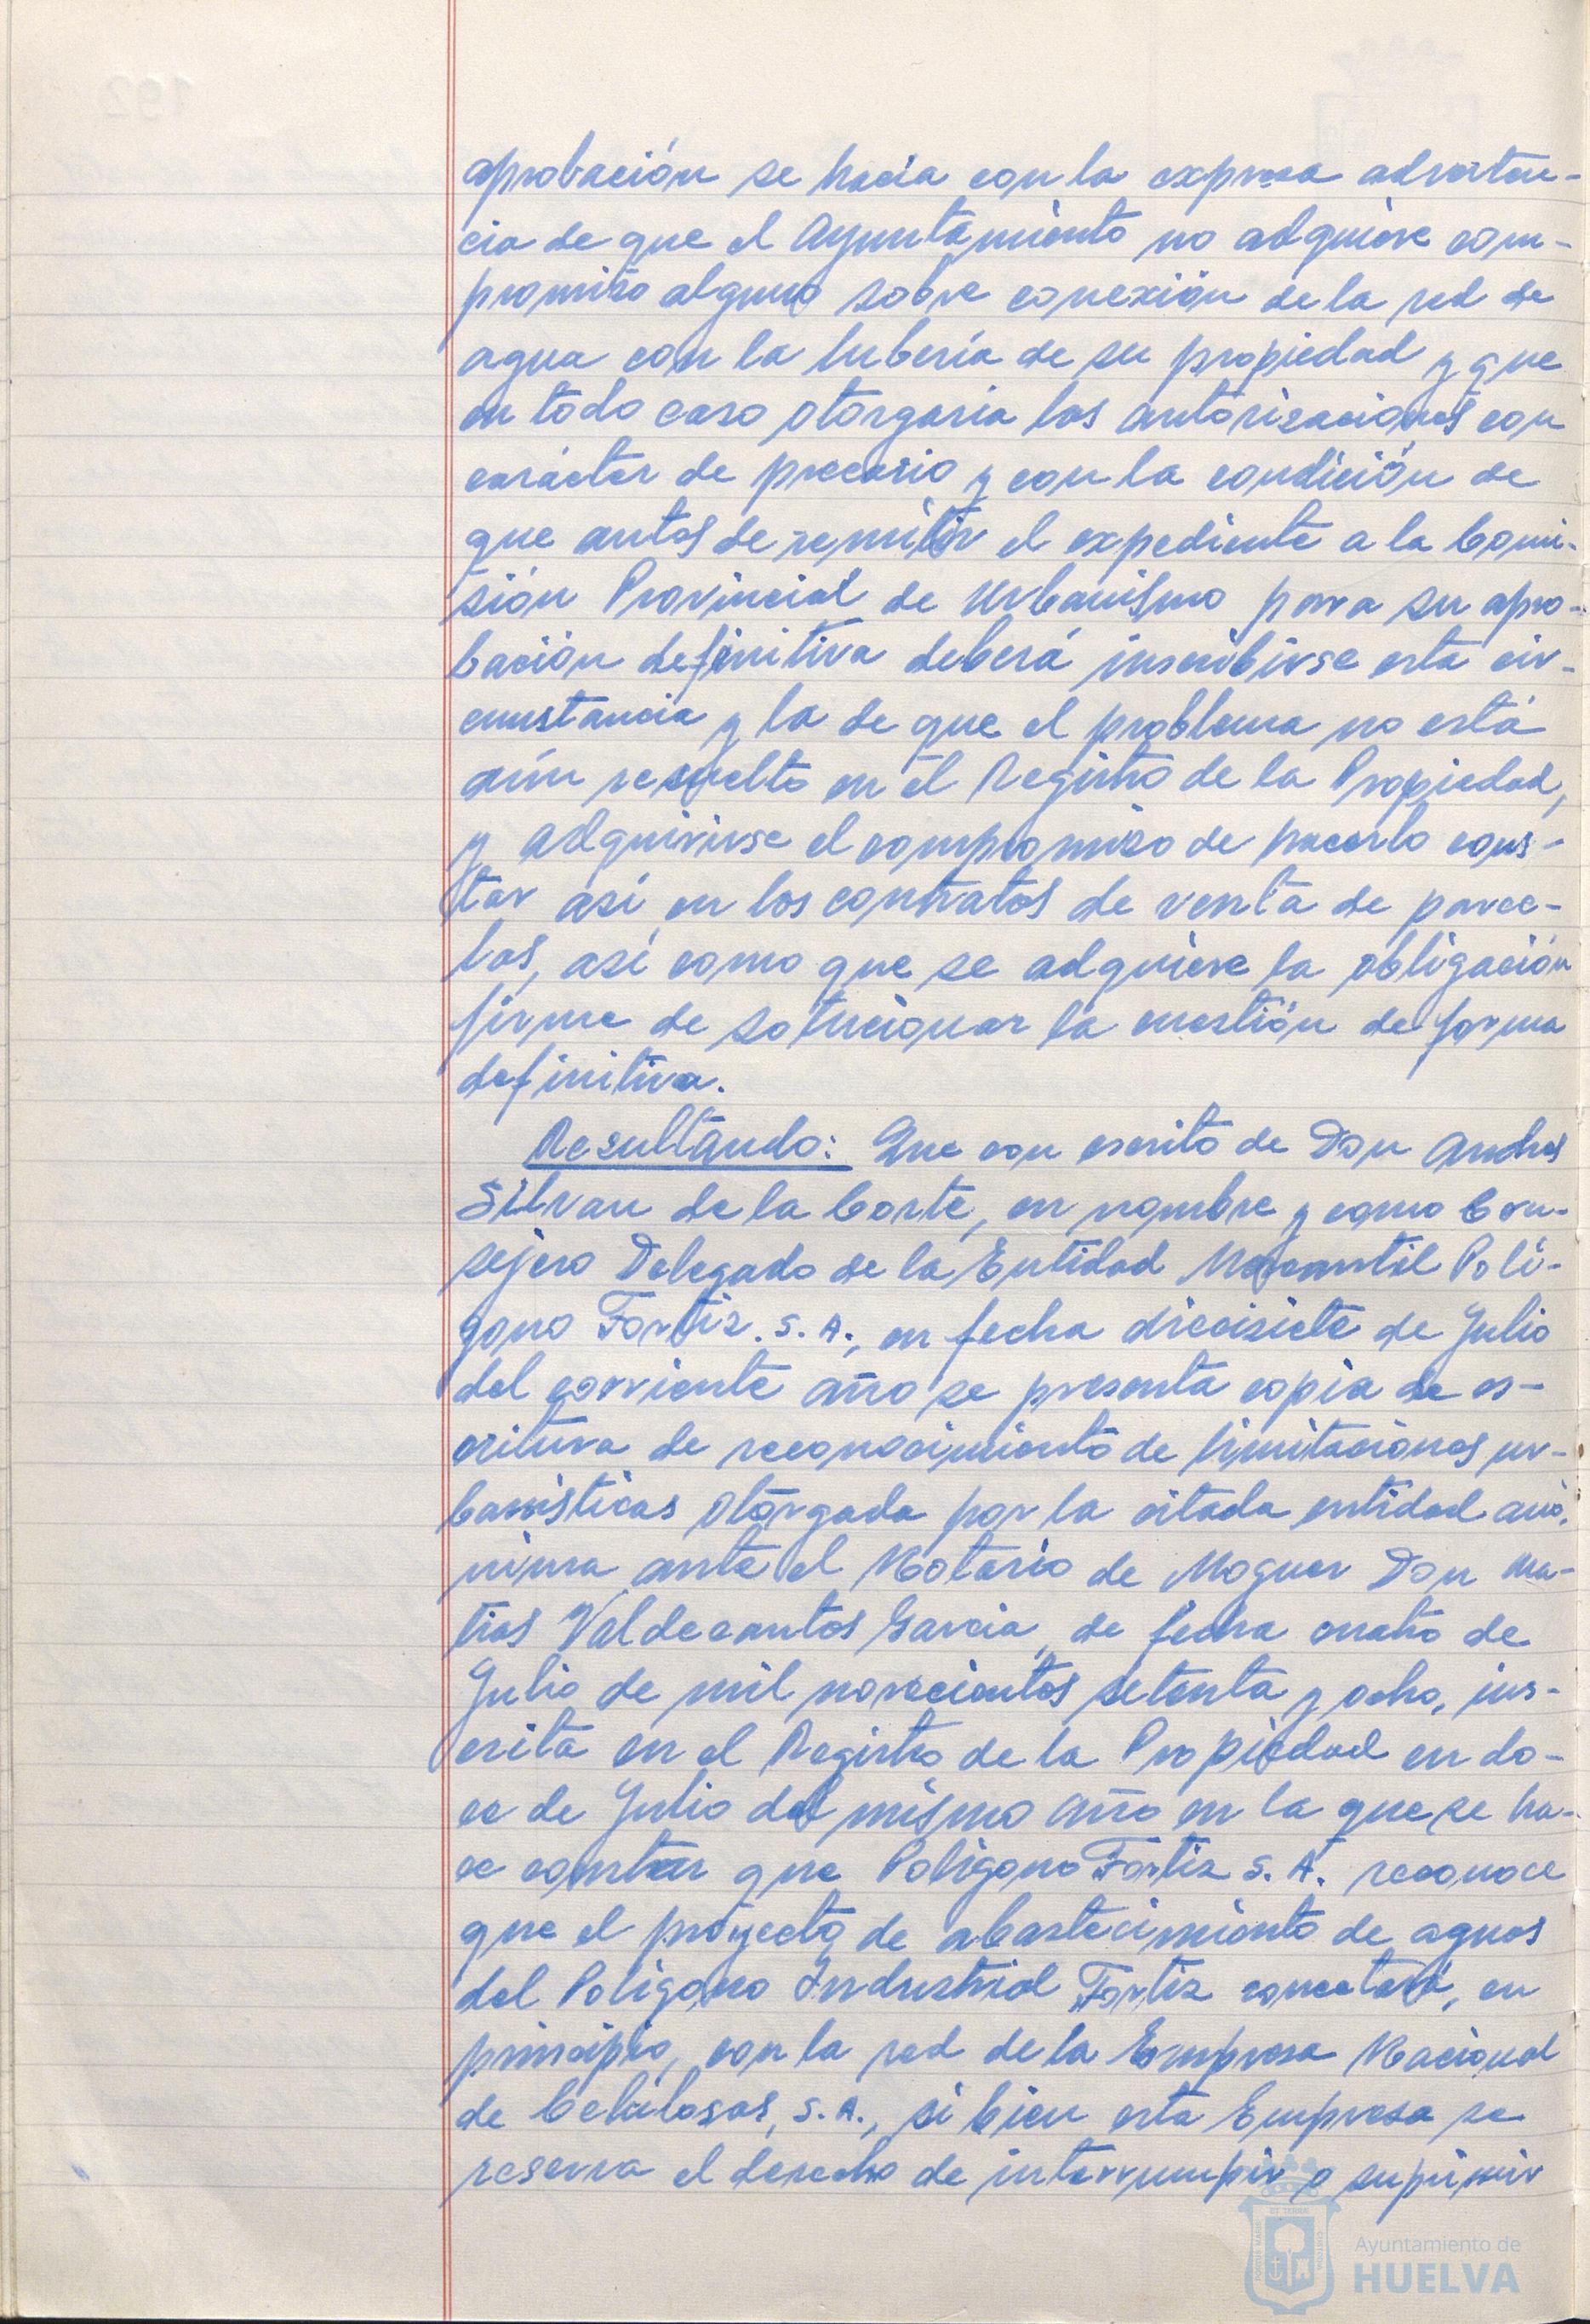 aprobación se hacía con la expresa adverten-
cia de que el Ayuntamiento no adquiere com-
promiso alguno sobre conexión de la red de
agua con la tubería de su propiedad y que
en todo caso otorgaría las autorizaciones con
carácter de precario y con la condición de
que antes de remitir el expediente a la Comi-
sión Provincial de Urbanismo para su apro-
bación definitiva deberá inscribirse esta cir-
cunstancia y la de que el problema no está
aún resuelto en el Registro de la Propiedad,
y adquirirse el compromiso de hacerlo cons-
tar así en los contratos de venta de parce-
las, así como que se adquiere la obligación
firme de solucionar la cuestión de forma
definitiva.
Resultando: Que con escrito de Don Andres
Silvan de la Corte, en nombre y como Con-
sejero Delegado de la Entidad Mercantil Polí-
gono Fortiz. S. A., en fecha diecisiete de Julio
del corriente año se presenta copia de es-
critura de reconocimiento de limitaciones ur-
banísticas otorgada por la citada entidad anó-
nima ante el Notario de Moguer Don Ma-
tias Valdecantos Garcia, de fecha cuatro de
Julio de mil novecientos setenta y ocho, ins-
crita en el Registro de la Propiedad en do-
ce de Julio del mismo año en la que se ha-
ce constar que Polígono Fortiz S. A. reconoce
que el proyecto de abastecimiento de aguas
del Polígono Industrial Fortiz conectará, en
principio, con la red de la Empresa Nacional
de Celulosas, S. A., si bien esta Empresa se
reserva el derecho de interrumpir o suprimir
Ayuntamiento de
HUELVA